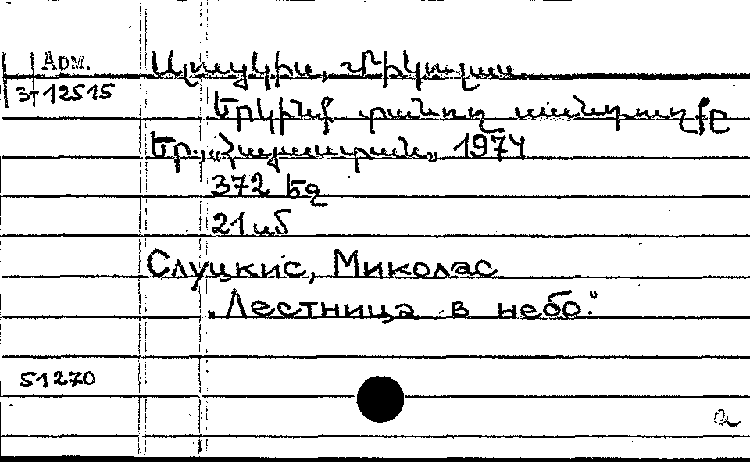 Арм.
3т 12515
Սլուցկիս, Միկոլաս
երկինք տանող սանդուղքը
Եր., „Հայաստան„ 1974
372 եզ
21 սմ
Слуцкис, Миколас
„Лестница в небо.“
51270